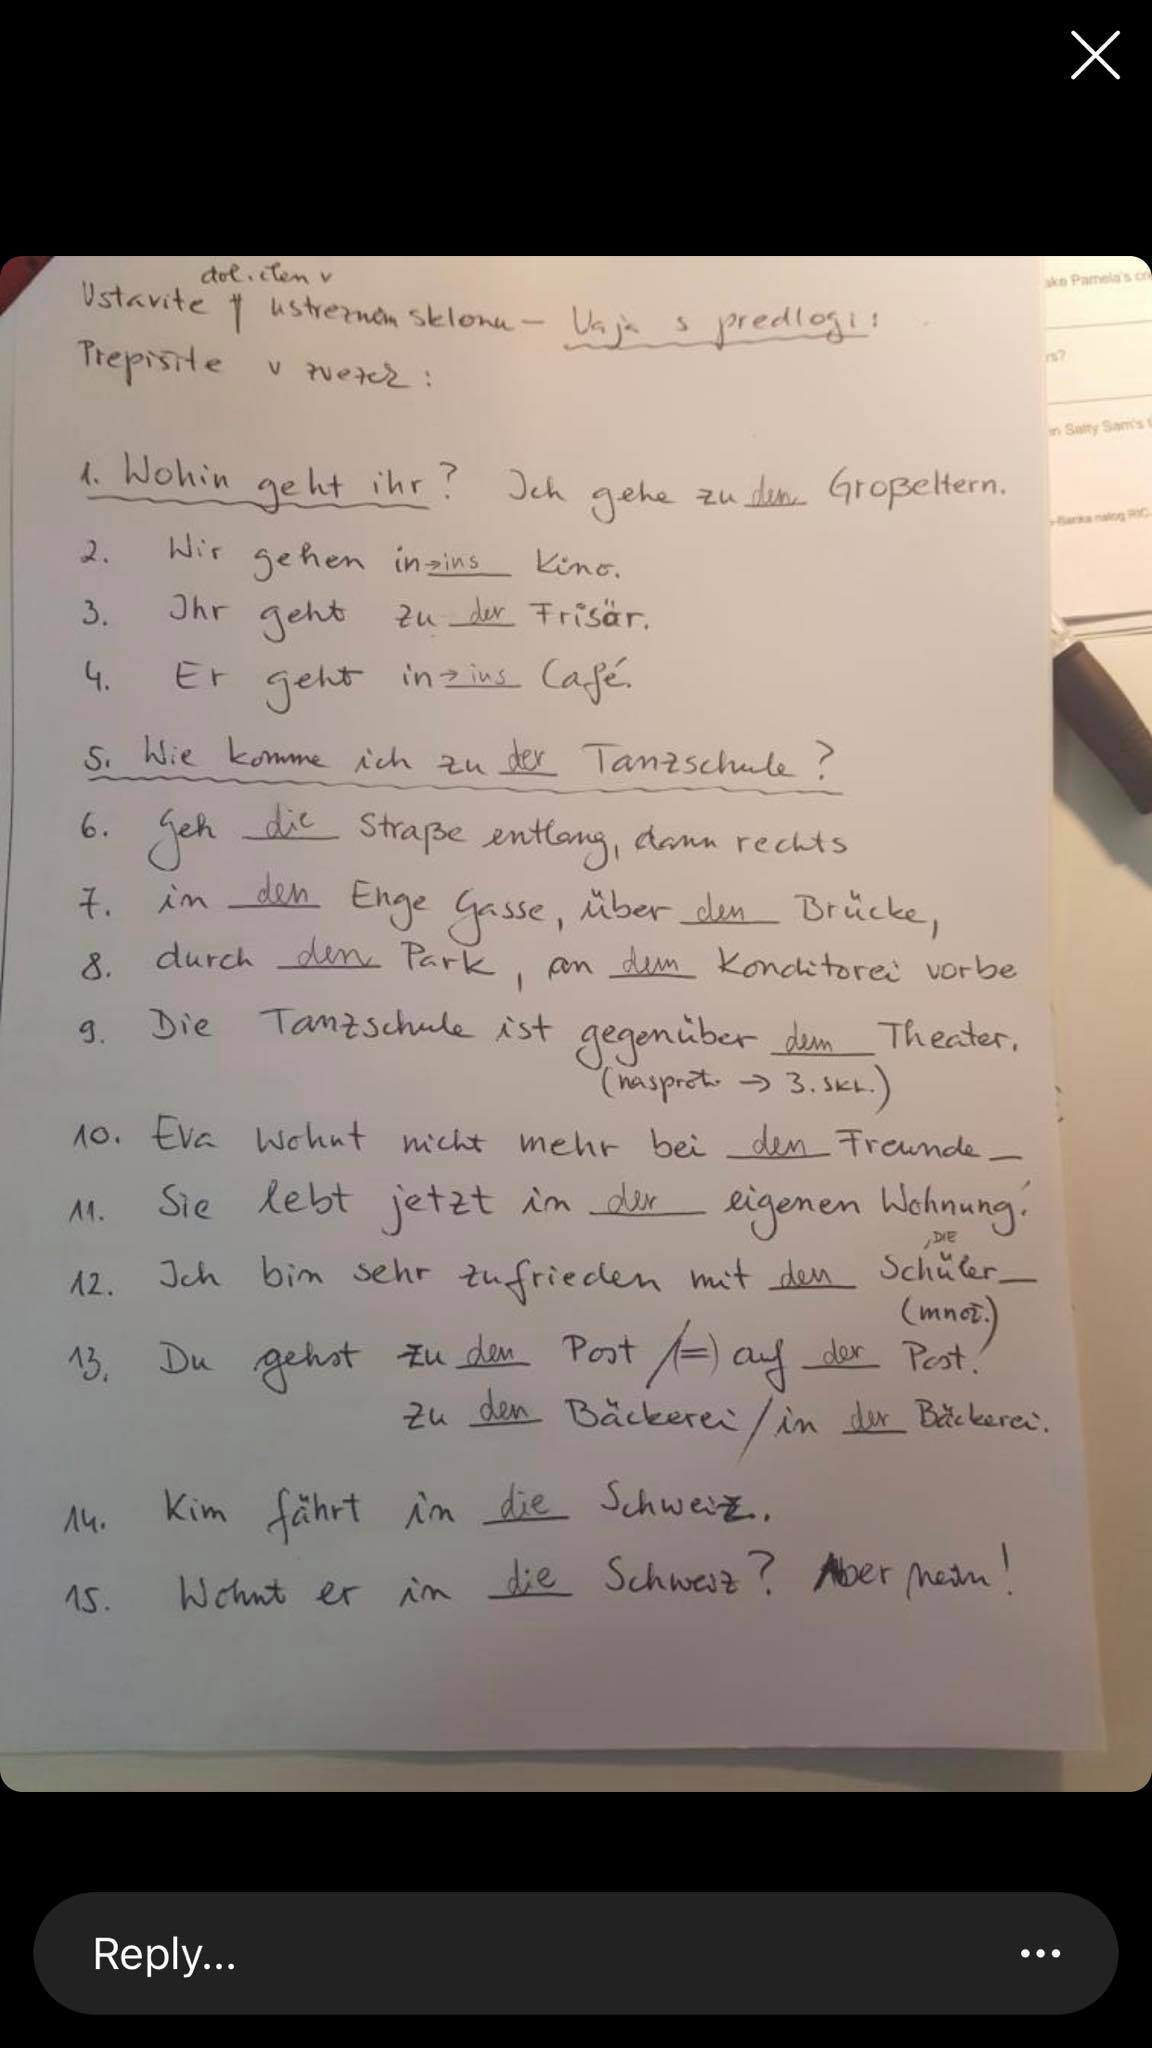 dol. člen v
Ustavite ustreznem sklonu - Vaja s predlogi:
Prepišite v zvezek:
1. Wohin geht ihr? Ich gehe zu den Großeltern.
2. Wir gehen in→ins Kino.
3. Ihr geht zu der Frisär.
4. Er geht in→ins Café.
5. Wie komme ich zu der Tanzschule?
6. Geh die Straße entlang, dann rechts
7. in den Enge Gasse, über den Brücke,
8. durch den Park, an dem Konditorei vorbe
9. Die Tanzschule ist gegenüber dem Theater.
(nasprot. → 3. skl.)
10. Eva wohnt nicht mehr bei den Freunde_
11. Sie lebt jetzt in der eigenen Wohnung.
, DIE
12. Ich bin sehr zufrieden mit den Schüler_
(množ.)
13. Du gehst zu den Post /(=) auf der Post.
zu den Bäckerei/in der Bäckerei.
14. Kim fährt in die Schweiz.
15. Wohnt er in die Schweiz? Aber nein!
ake Pamela's
rs?
in Salty Sam's
Reply...